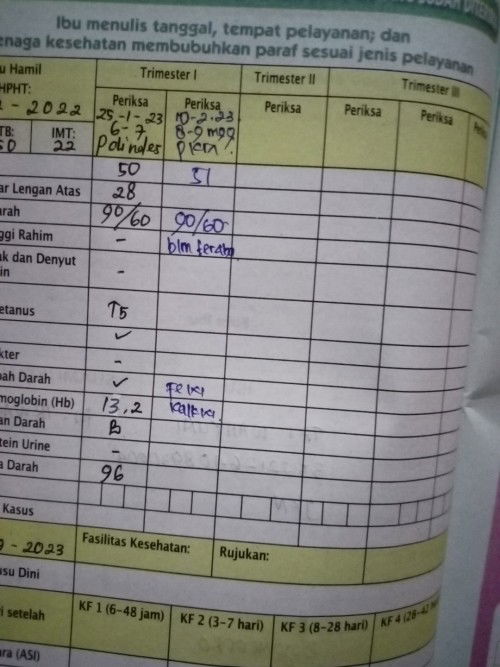 Ibu menulis tanggal, tempat pelayanan; dan
enaga kesehatan membubuhkan paraf sesuai jenis pelayanan
u Hamil Trimester I Trimester II Trimester III
HPHT:
- 2022 Periksa Periksa Periksa Periksa Periksa
25-1-23 10-2-23
TB: IMT: 6-7 8-9 mgg
50 22 Polindes
50 51
ar Lengan Atas 28
arah 90/60 90/60
ggi Rahim - blm teraba
ak dan Denyut
in -
etanus T5
✓
kter -
bah Darah ✓ Fe
moglobin (Hb) 13,2
an Darah B
tein Urine -
a Darah 96
Kasus
9 - 2023 Fasilitas Kesehatan: Rujukan:
usu Dini
i setelah KF 1 (6-48 jam) KF 2 (3-7 hari) KF 3 (8-28 hari) KF 4 (28-42
ara (ASI)